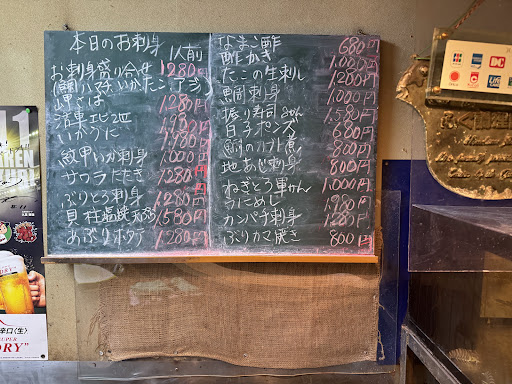 本日のお刺身 1人前
お刺身盛り合せ 1280円
(鯛ハマチいかたこアジ)
〆さば 1280円
活車エビ2匹
いかうに 1,980円
紋甲いか刺身 1,000円
サワラたたき 1280円
ぶりとろ刺身 1280円
貝柱塩焼 1,580円
あぶりホタテ 1,280円
なまこ酢 680円
酢かき 1,020円
たこの生刺し 1280円
鯛刺身 1000円
握り寿司8かん 1,580円
白子ポンズ 680円
鯛のカブト煮 800円
地あじ刺身 800円
ねぎとろ軍かん 1,000円
うにめし 1980円
カンパチ刺身 1280円
ぶりカマ焼き 800円
JCB
DC
Life
辛口〈生〉